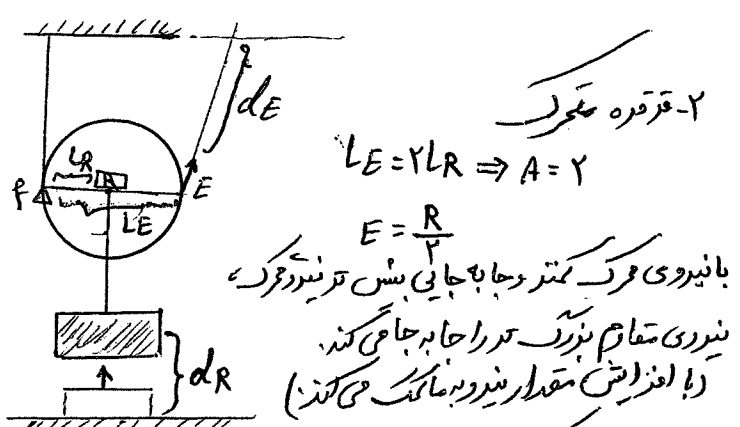 ۲- قرقره متحرک
LE = ۲LR ⇒ A = ۲
E = R/۲
با نیروی محرک کمتر و جابه جایی بیش تر نیرو محرک،
نیروی مقاوم بزرگ تر را جا به جا می کند.
(با افزایش مقدار نیرو به ما کمک می کند.)
dE
LR
f
A
E
LE
dR